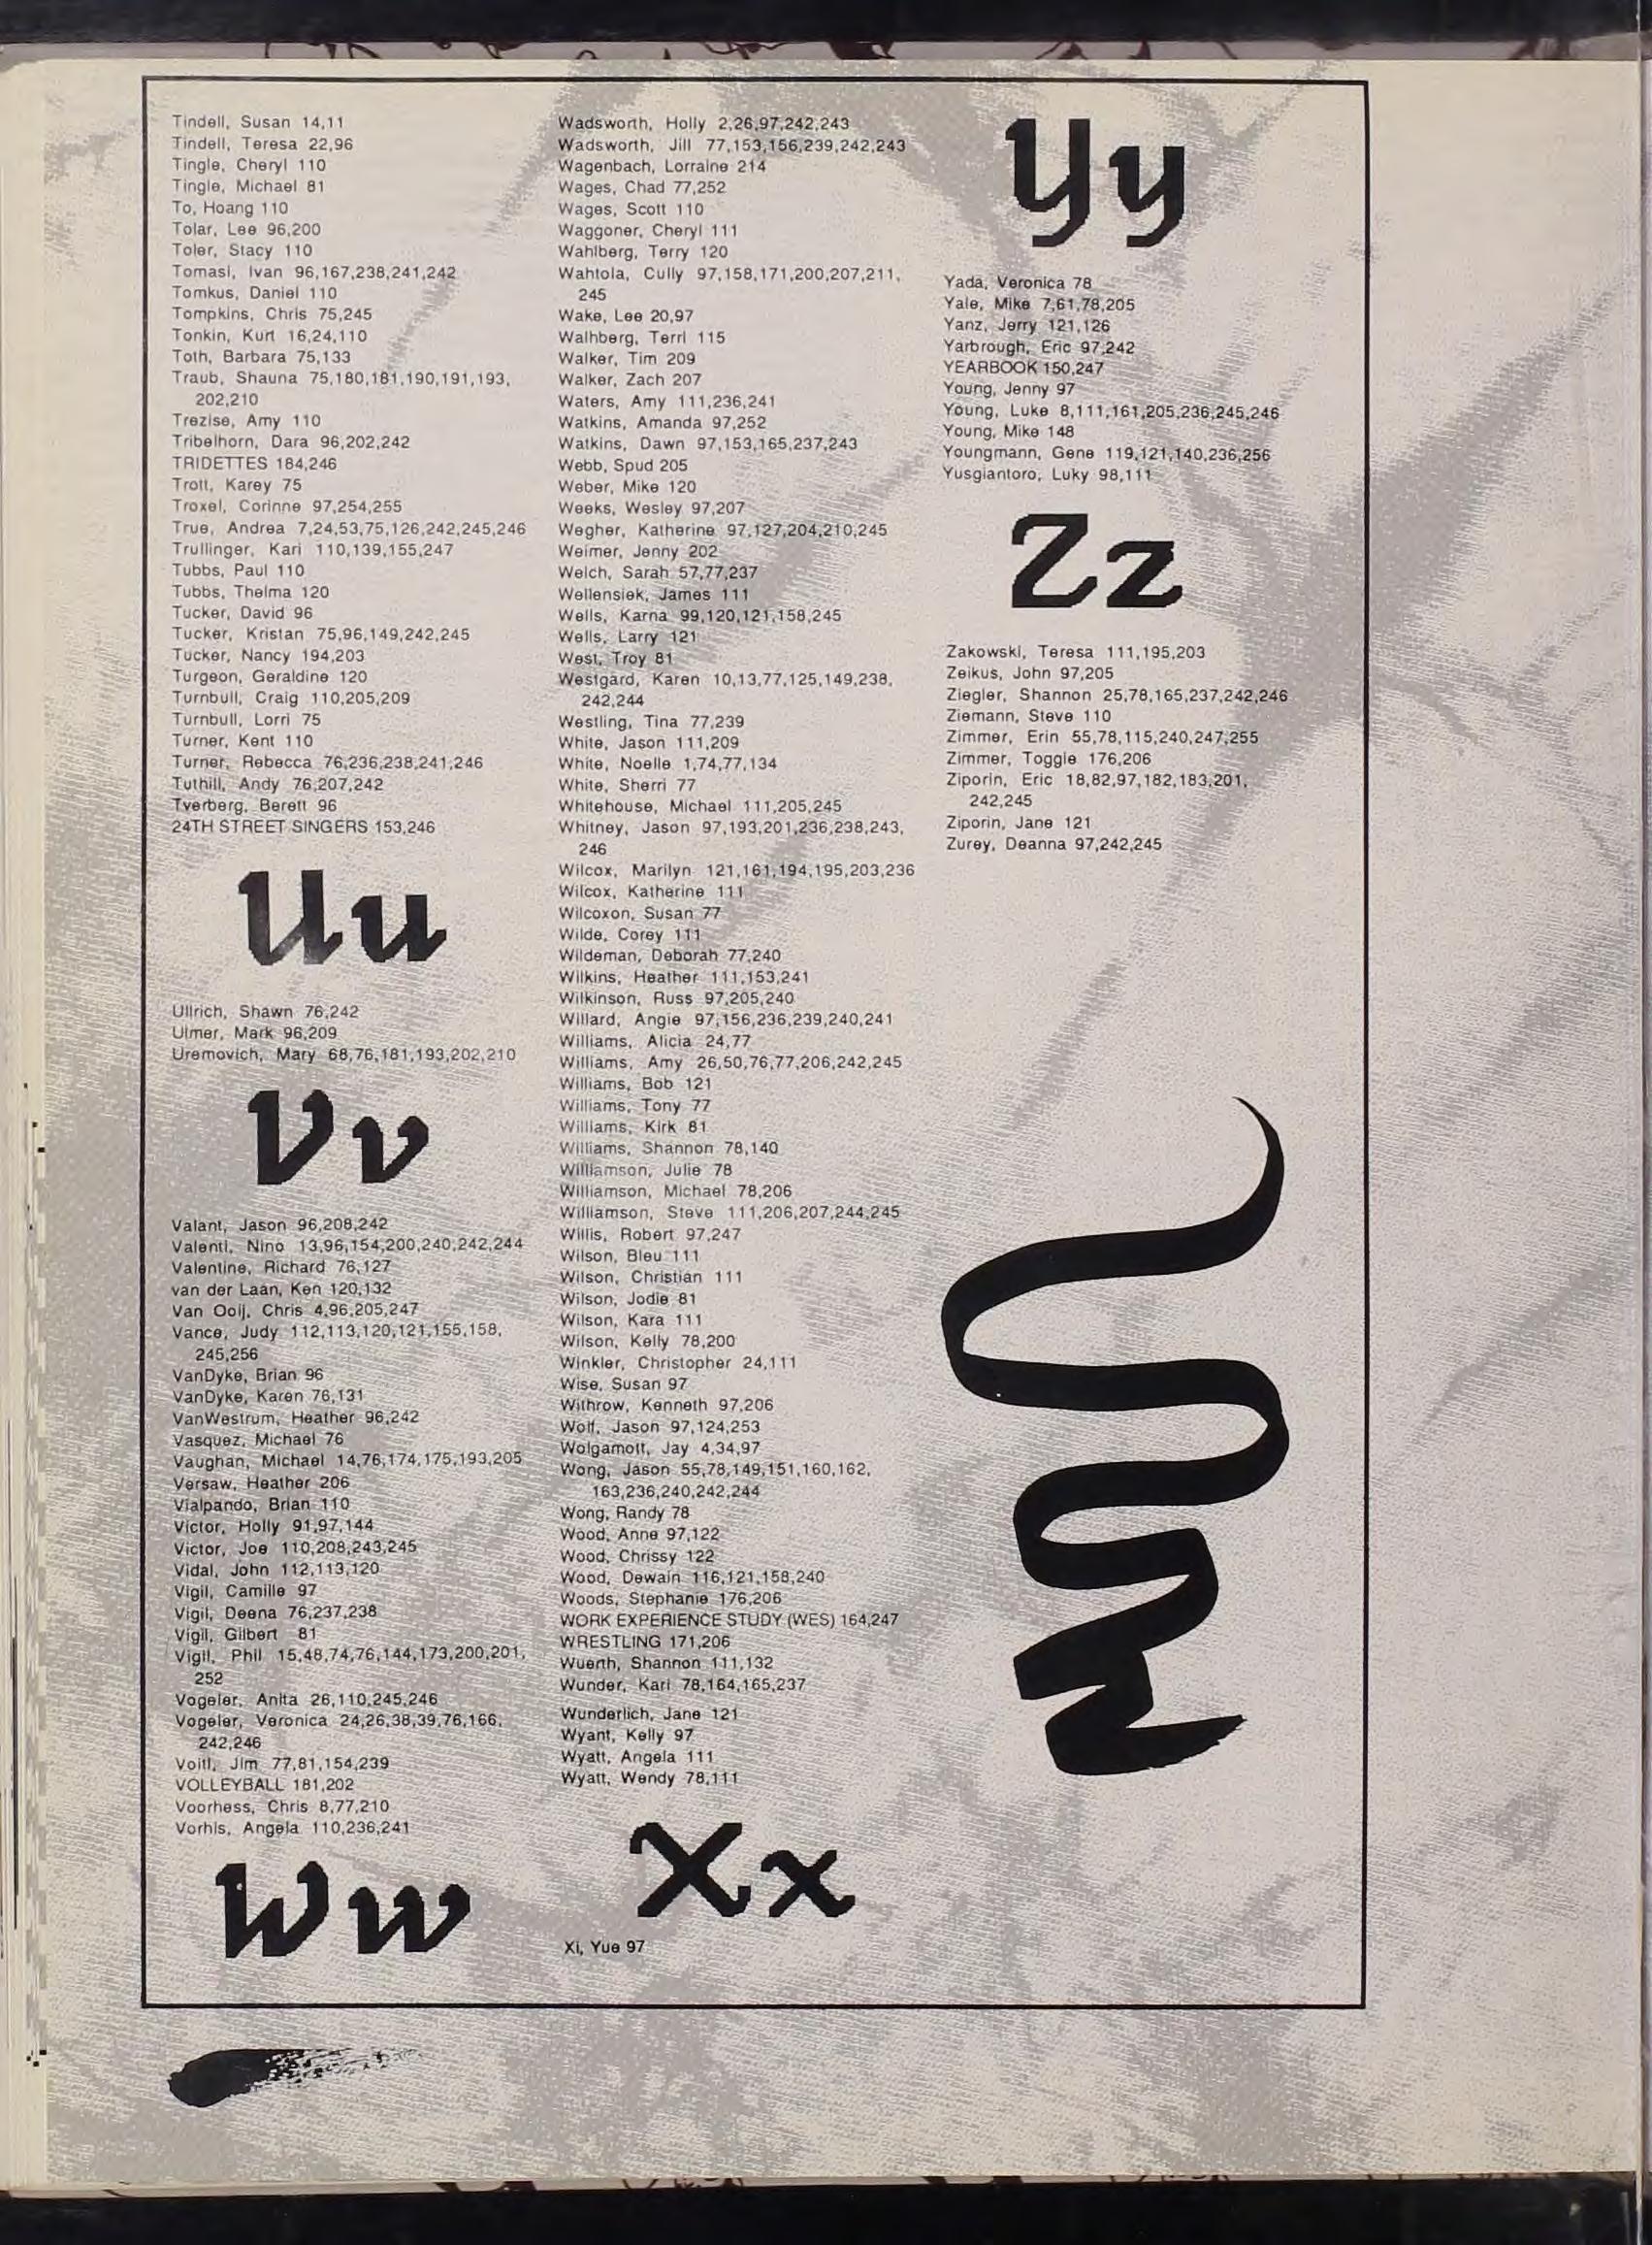 Tindell, Susan 14,11
Tindell, Teresa 22,96
Tingle, Cheryl 110
Tingle, Michael 81
To, Hoang 110
Tolar, Lee 96,200
Toler, Stacy 110
Tomasi, Ivan 96,167,238,241,242
Tomkus, Daniel 110
Tompkins, Chris 75,245
Tonkin, Kurt 16,24,110
Toth, Barbara 75,133
Traub, Shauna 75,180,181,190,191,193,
202,210
Trezise, Amy 110
Tribelhorn, Dara 96,202,242
TRIDETTES 184,246
Trott, Karey 75
Troxel, Corinne 97,254,255
True, Andrea 7,24,53,75,126,242,245,246
Trullinger, Kari 110,139,155,247
Tubbs, Paul 110
Tubbs, Thelma 120
Tucker, David 96
Tucker, Kristan 75,96,149,242,245
Tucker, Nancy 194,203
Turgeon, Geraldine 120
Turnbull, Craig 110,205,209
Turnbull, Lorri 75
Turner, Kent 110
Turner, Rebecca 76,236,238,241,246
Tuthill, Andy 76,207,242
Tverberg, Berett 96
24TH STREET SINGERS 153,246
Uu
Ullrich, Shawn 76,242
Ulmer, Mark 96,209
Uremovich, Mary 68,76,181,193,202,210
Vv
Valant, Jason 96,208,242
Valenti, Nino 13,96,154,200,240,242,244
Valentine, Richard 76,127
van der Laan, Ken 120,132
Van Ooij, Chris 4,96,205,247
Vance, Judy 112,113,120,121,155,158,
245,256
VanDyke, Brian 96
VanDyke, Karen 76,131
VanWestrum, Heather 96,242
Vasquez, Michael 76
Vaughan, Michael 14,76,174,175,193,205
Versaw, Heather 206
Vialpando, Brian 110
Victor, Holly 91,97,144
Victor, Joe 110,208,243,245
Vidal, John 112,113,120
Vigil, Camille 97
Vigil, Deena 76,237,238
Vigil, Gilbert 81
Vigil, Phil 15,48,74,76,144,173,200,201,
252
Vogeler, Anita 26,110,245,246
Vogeler, Veronica 24,26,38,39,76,166,
242,246
Voitl, Jim 77,81,154,239
VOLLEYBALL 181,202
Voorhess, Chris 8,77,210
Vorhis, Angela 110,236,241
Ww
Wadsworth, Holly 2,26,97,242,243
Wadsworth, Jill 77,153,156,239,242,243
Wagenbach, Lorraine 214
Wages, Chad 77,252
Wages, Scott 110
Waggoner, Cheryl 111
Wahlberg, Terry 120
Wahtola, Cully 97,158,171,200,207,211,
245
Wake, Lee 20,97
Walhberg, Terri 115
Walker, Tim 209
Walker, Zach 207
Waters, Amy 111,236,241
Watkins, Amanda 97,252
Watkins, Dawn 97,153,165,237,243
Webb, Spud 205
Weber, Mike 120
Weeks, Wesley 97,207
Wegher, Katherine 97,127,204,210,245
Weimer, Jenny 202
Welch, Sarah 57,77,237
Wellensiek, James 111
Wells, Karna 99,120,121,158,245
Wells, Larry 121
West, Troy 81
Westgard, Karen 10,13,77,125,149,238,
242,244
Westling, Tina 77,239
White, Jason 111,209
White, Noelle 1,74,77,134
White, Sherri 77
Whitehouse, Michael 111,205,245
Whitney, Jason 97,193,201,236,238,243,
246
Wilcox, Marilyn 121,161,194,195,203,236
Wilcox, Katherine 111
Wilcoxon, Susan 77
Wilde, Corey 111
Wildeman, Deborah 77,240
Wilkins, Heather 111,153,241
Wilkinson, Russ 97,205,240
Willard, Angie 97,156,236,239,240,241
Williams, Alicia 24,77
Williams, Amy 26,50,76,77,206,242,245
Williams, Bob 121
Williams, Tony 77
Williams, Kirk 81
Williams, Shannon 78,140
Williamson, Julie 78
Williamson, Michael 78,206
Williamson, Steve 111,206,207,244,245
Willis, Robert 97,247
Wilson, Bleu 111
Wilson, Christian 111
Wilson, Jodie 81
Wilson, Kara 111
Wilson, Kelly 78,200
Winkler, Christopher 24,111
Wise, Susan 97
Withrow, Kenneth 97,206
Wolf, Jason 97,124,253
Wolgamott, Jay 4,34,97
Wong, Jason 55,78,149,151,160,162,
163,236,240,242,244
Wong, Randy 78
Wood, Anne 97,122
Wood, Chrissy 122
Wood, Dewain 116,121,158,240
Woods, Stephanie 176,206
WORK EXPERIENCE STUDY (WES) 164,247
WRESTLING 171,206
Wuerth, Shannon 111,132
Wunder, Kari 78,164,165,237
Wunderlich, Jane 121
Wyant, Kelly 97
Wyatt, Angela 111
Wyatt, Wendy 78,111
Xx
Xi, Yue 97
Yy
Yada, Veronica 78
Yale, Mike 7,61,78,205
Yanz, Jerry 121,126
Yarbrough, Eric 97,242
YEARBOOK 150,247
Young, Jenny 97
Young, Luke 8,111,161,205,236,245,246
Young, Mike 148
Youngmann, Gene 119,121,140,236,256
Yusgiantoro, Luky 98,111
Zz
Zakowski, Teresa 111,195,203
Zeikus, John 97,205
Ziegler, Shannon 25,78,165,237,242,246
Ziemann, Steve 110
Zimmer, Erin 55,78,115,240,247,255
Zimmer, Toggie 176,206
Ziporin, Eric 18,82,97,182,183,201,
242,245
Ziporin, Jane 121
Zurey, Deanna 97,242,245